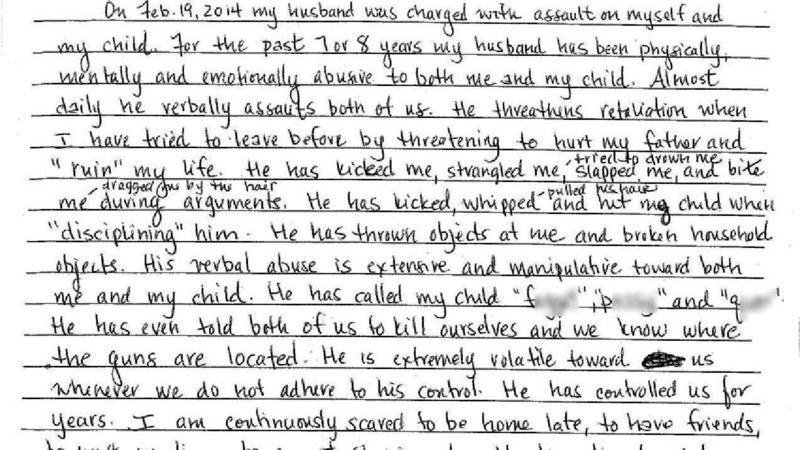 On Feb. 19, 2014 my husband was charged with assault on myself and
my child. For the past 7 or 8 years my husband has been physically,
mentally and emotionally abusive to both me and my child. Almost
daily he verbally assauts both of us. He threathins retaliation when
I have tried to leave before by threatening to hurt my father and
"ruin" my life. He has kicked me, strangled me, tried to drown me slapped me, and bite
me dragged me by the hair during arguments. He has kicked, whipped pulled his hair and hit my child when
"disciplining" him. He has thrown objects at me and broken household
objects. His verbal abuse is extensive and manipulative toward both
me and my child. He has called my child "f", "p" and "q".
He has even told both of us to kill ourselves and we know where
the guns are located. He is extremely volatile toward us
whenever we do not adhere to his control. He has controlled us for
years. I am continuously scared to be home late, to have friends,